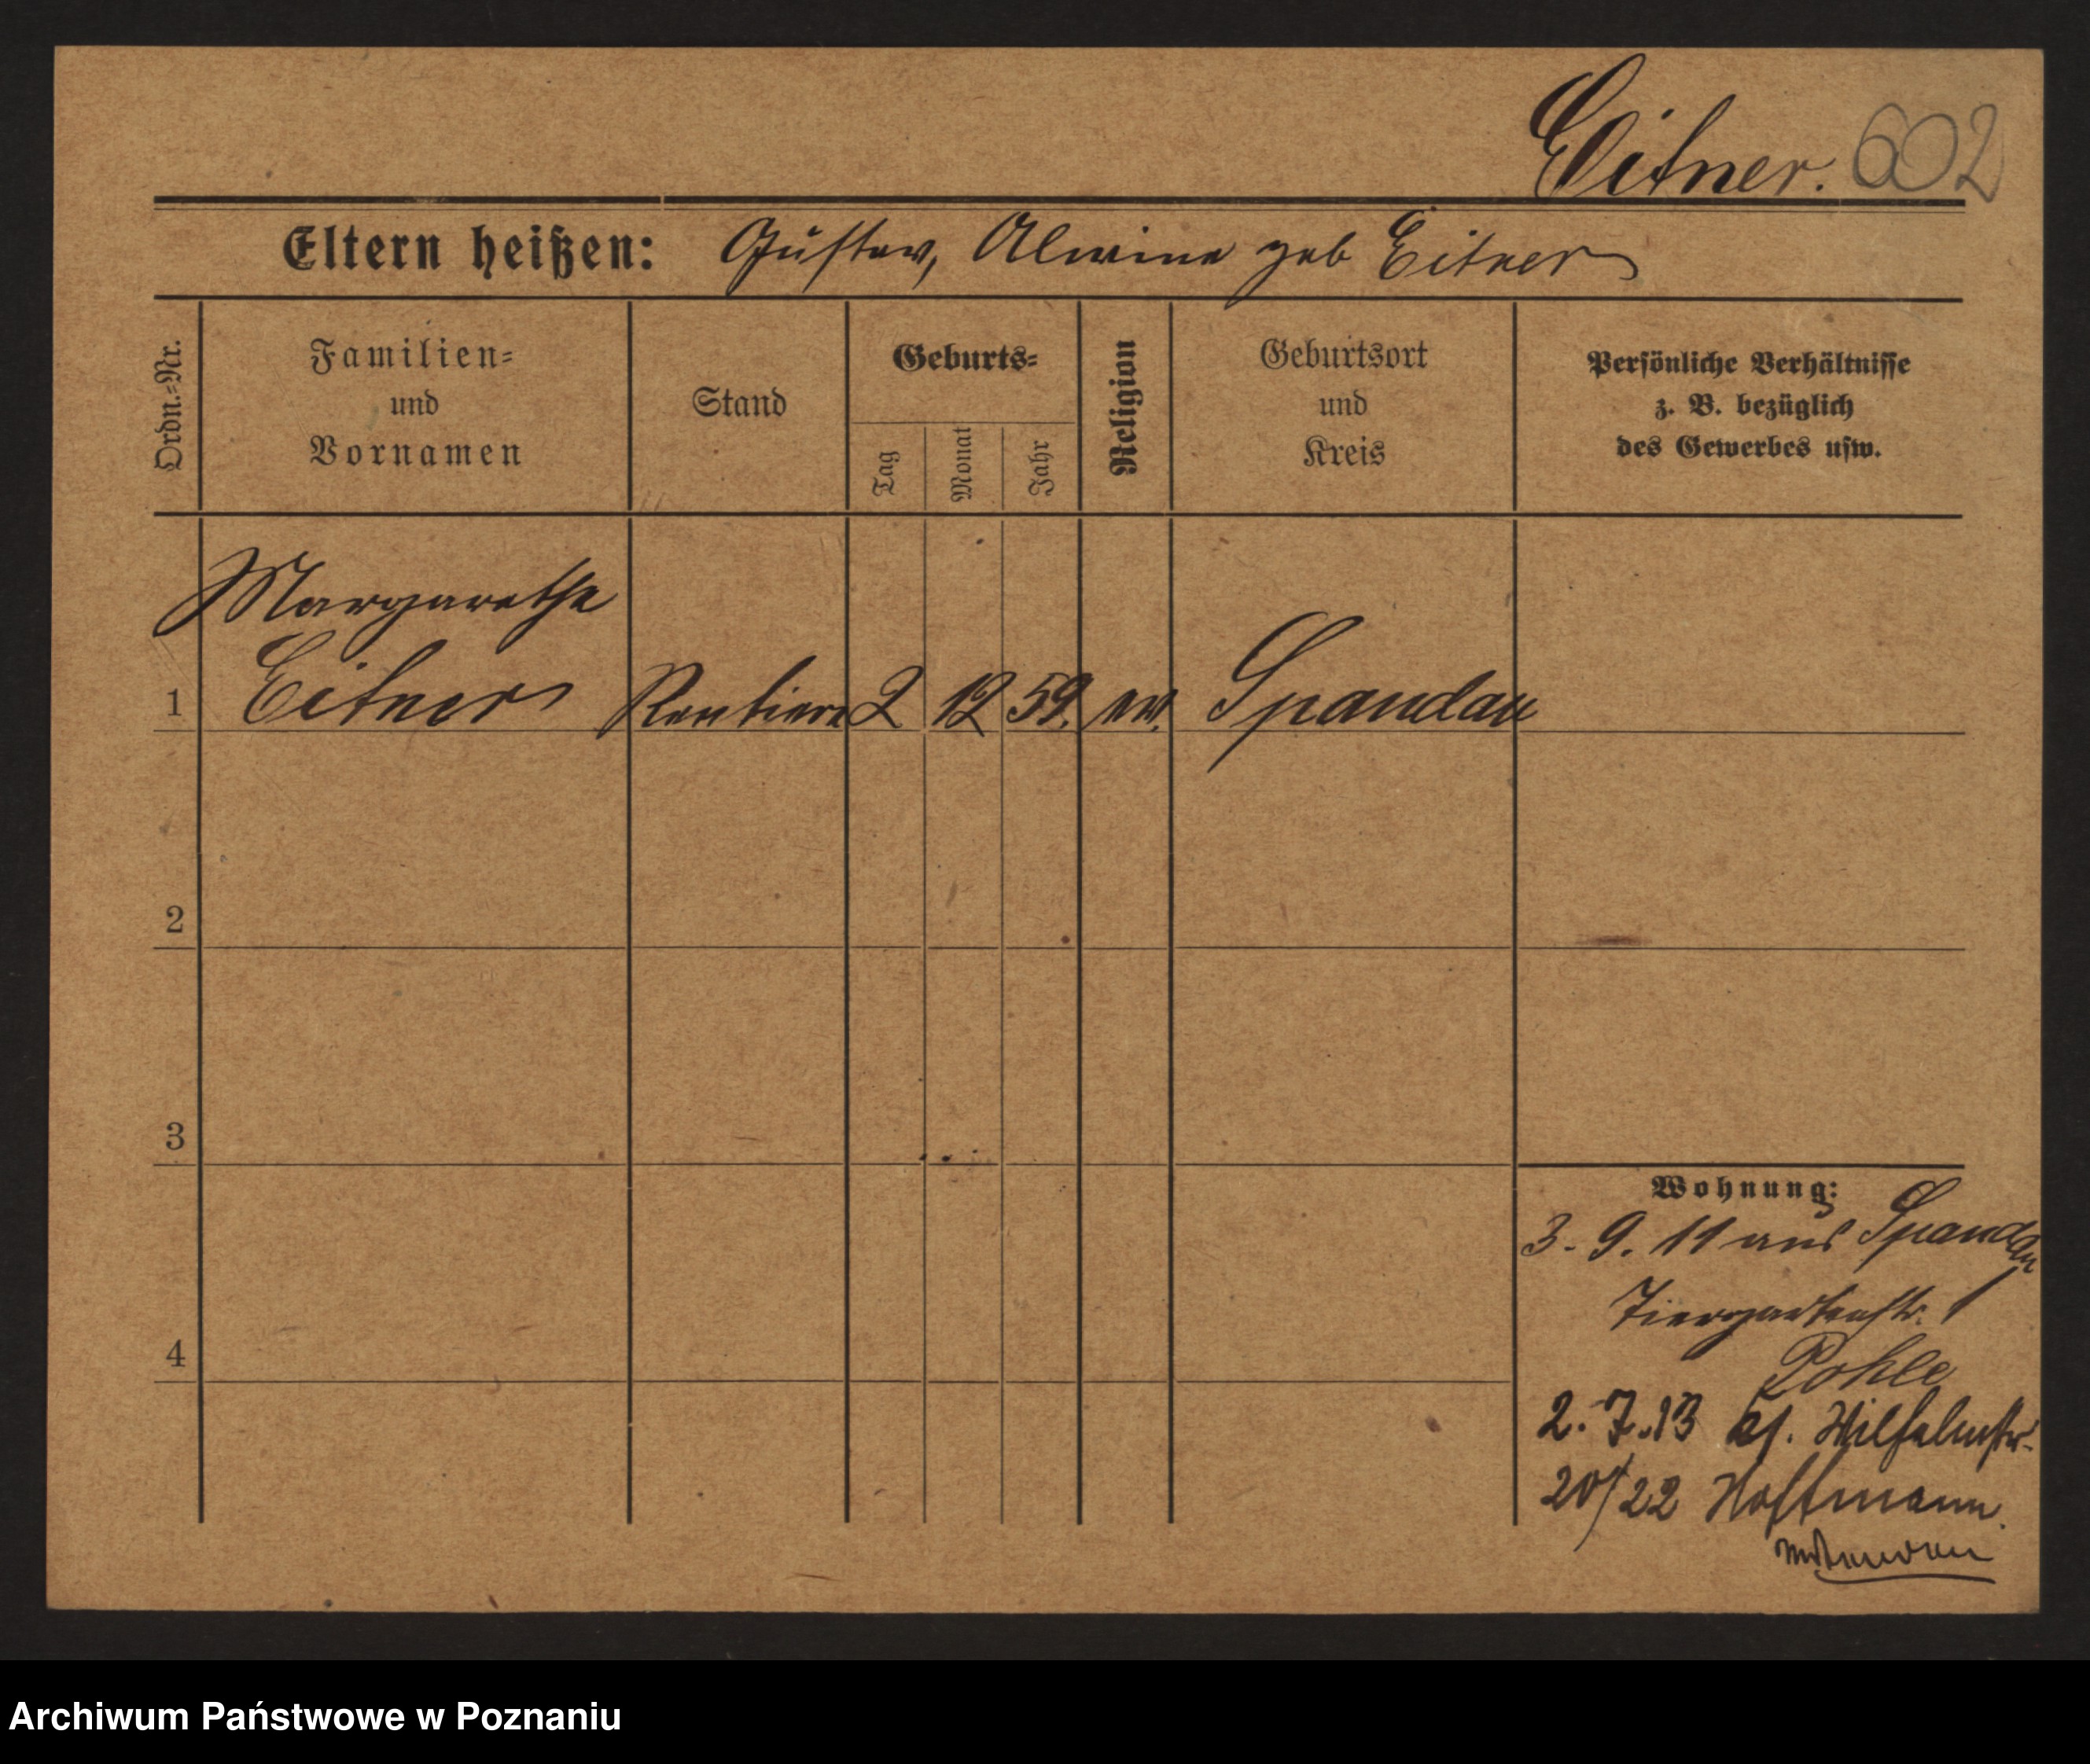 Eitner. 602
Eltern heißen: Gustav, Alwine geb Eitner
Ordn.-Nr.
Familien-
und
Vornamen
Stand
Geburts-
Tag
Monat
Jahr
Religion
Geburtsort
und
Kreis
Persönliche Verhältnisse
z. B. bezüglich
des Gewerbes usw.
Margarethe
1 Eitner Rentiere 2 12 59. ev. Spandau
2
3
4
Wohnung:
3. 9. 11 aus Spandau
Tiergartenstr. 1
Pohle
2. 7. 13 Wilhelmstr.
20/22 Hoffmann.
Archiwum Państwowe w Poznaniu